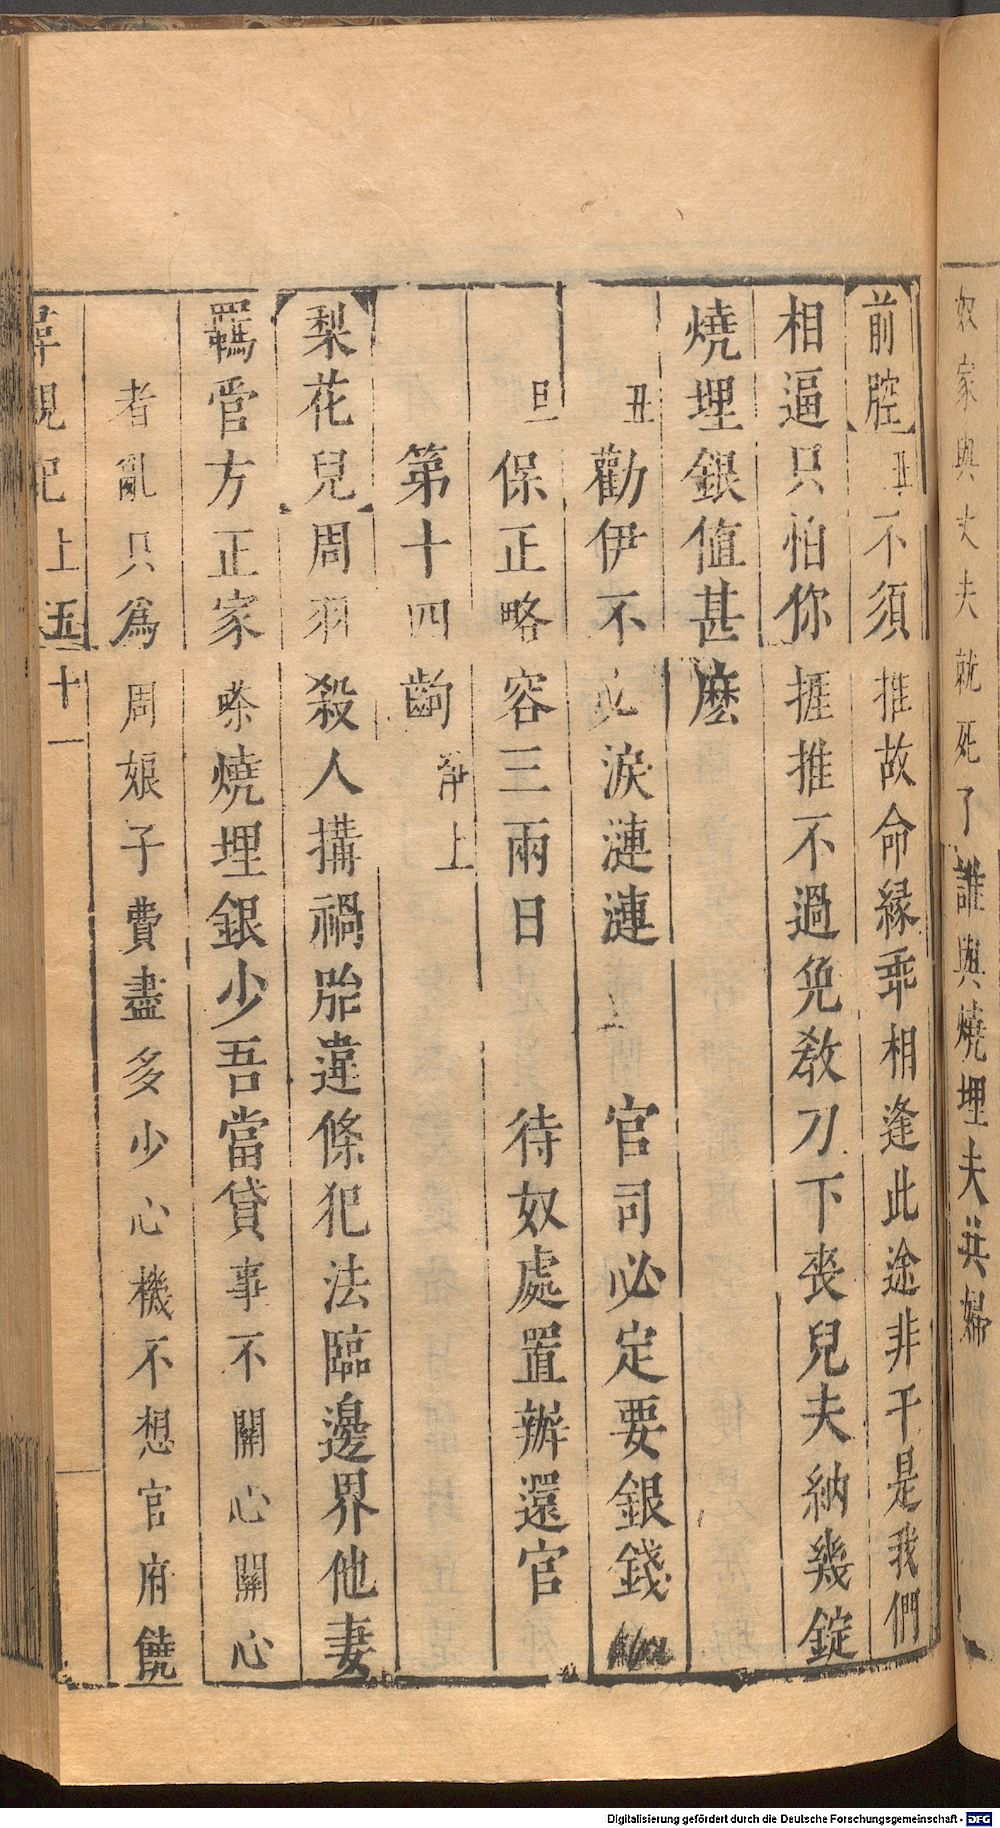 奴家與丈夫就死了誰與燒埋夫共婦
前腔丑不須推故命緣乖相逢此途非干是我們
相逼只怕你捱推不過免教刀下喪兒夫納幾錠
燒埋銀值甚麽
丑勸伊不必淚漣漣 官司必定要銀錢
旦保正略容三兩日 待奴處置辦還官
第十四齣 淨上
梨花兒周羽殺人搆禍胎違條犯法臨邊界他妻
羈管方正家嗏燒埋銀少吾當貸事不關心關心
者亂只爲周娘子費盡多少心機不想官府饒
尋親記上 五十一
Digitalisierung gefördert durch die Deutsche Forschungsgemeinschaft - DFG